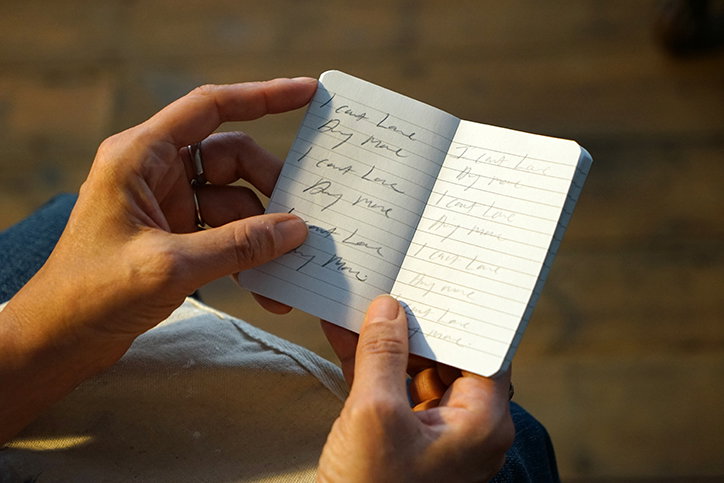 I cant Love
Any More
I cant Love
Any More
I cant Love
Any More.
I cant Love
Any more
I cant Love
Any more
I cant Love
Any more
cant Love
Any more.